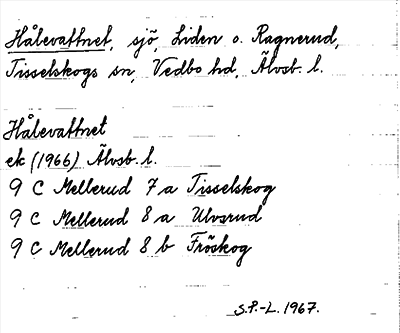 Hålevattnet, sjö, Liden o. Ragnerud,
Tisselskogs sn, Vedbo hd, Älvsb. l.
Hålevattnet
ek (1966) Älvsb. l.
9 C Mellerud 7 a Tisselskog
9 C Mellerud 8 a Ulvsrud
9 C Mellerud 8 b Fröskog
S.P.-L. 1967.